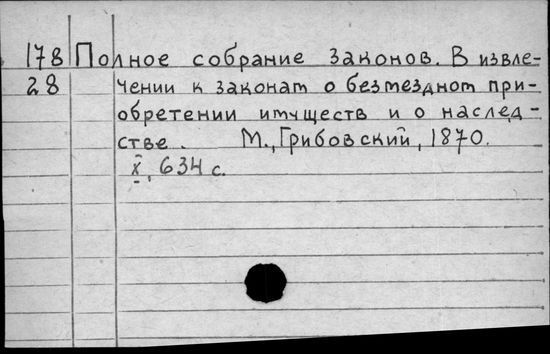 178 Полное собрание законов. В извле-
28 чении к законам о безмездном при-
обретении имуществ и о наслед-
стве. М., Грибовский, 1870.
X, 634 с.